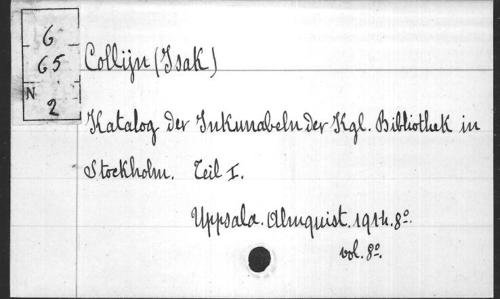 6
65
N
2
Collijn (Isak)
Katalog der Inkunabeln der Kgl. Bibliothek in
Stockholm. Teil I.
Uppsala. Almquist. 1914. 8º.
vol. 8º.